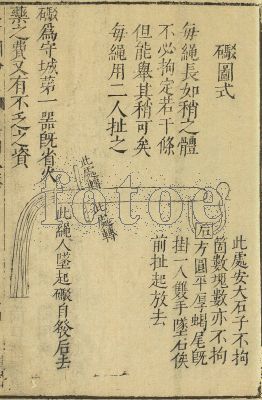 礮圖式
每繩長如稍之體
不必拘定若干條
但能舉其稍可矣
每繩用二人扯之
礮為守城第一器旣省火
藥之費又有不乏之資
此處轉
此處轉
此繩人墜起礮自發后去
后
此處安大石子不拘
箇數塊數亦不拘
方圓平厚蝎尾旣
挂一人雙手墜石俟
前扯起放去
fotoe